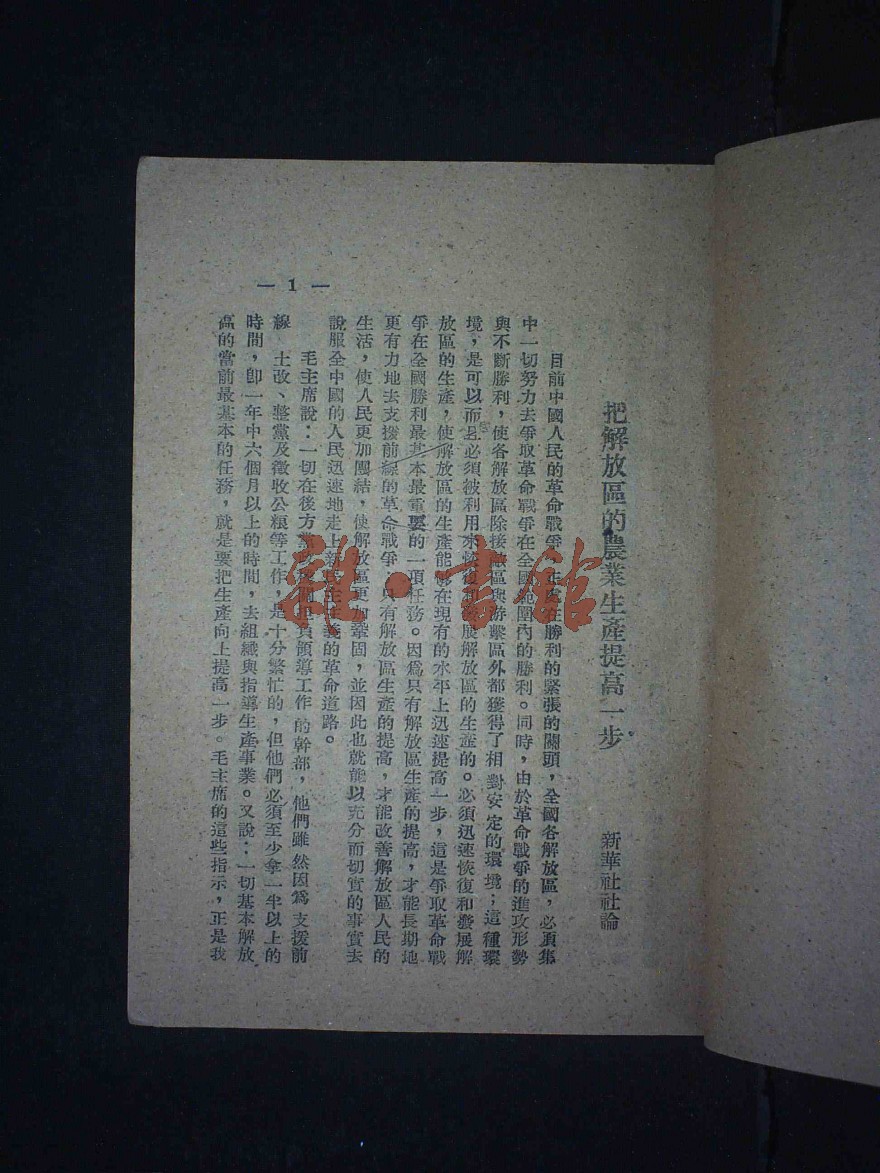 把解放區的農業生產提高一步
新華社社論
目前中國人民的革命戰爭,正處在勝利的緊張的關頭,全國各解放區,必須集
中一切努力去爭取革命戰爭在全國範圍內的勝利。同時,由於革命戰爭的進攻形勢
與不斷勝利,使各解放區除接敵區與游擊區外都獲得了相對安定的環境;這種環
境,是可以而且必須被利用來恢復和發展解放區的生產的。必須迅速恢復和發展解
放區的生產,使解放區的生產能夠在現有的水平上迅速提高一步,這是爭取革命戰
爭在全國勝利最基本最重要的一項任務。因爲只有解放區生產的提高,才能長期地
更有力地去支援前線的革命戰爭,只有解放區生產的提高,才能改善解放區人民的
生活,使人民更加團結,使解放區更加鞏固,並因此也就能以充分而切實的事實去
說服全中國的人民迅速地走上新民主主義的革命道路。
毛主席說:一切在後方黨政機關担負領導工作的幹部,他們雖然因爲支援前
線 土改、整黨及徵收公糧等工作,是十分繁忙的,但他們必須至少拿一半以上的
時間,卽一年中六個月以上的時間,去組織與指導生產事業。又說:一切基本解放
區的當前最基本的任務,就是要把生產向上提高一步。毛主席的這些指示,正是我
— 1 —
雜·書館